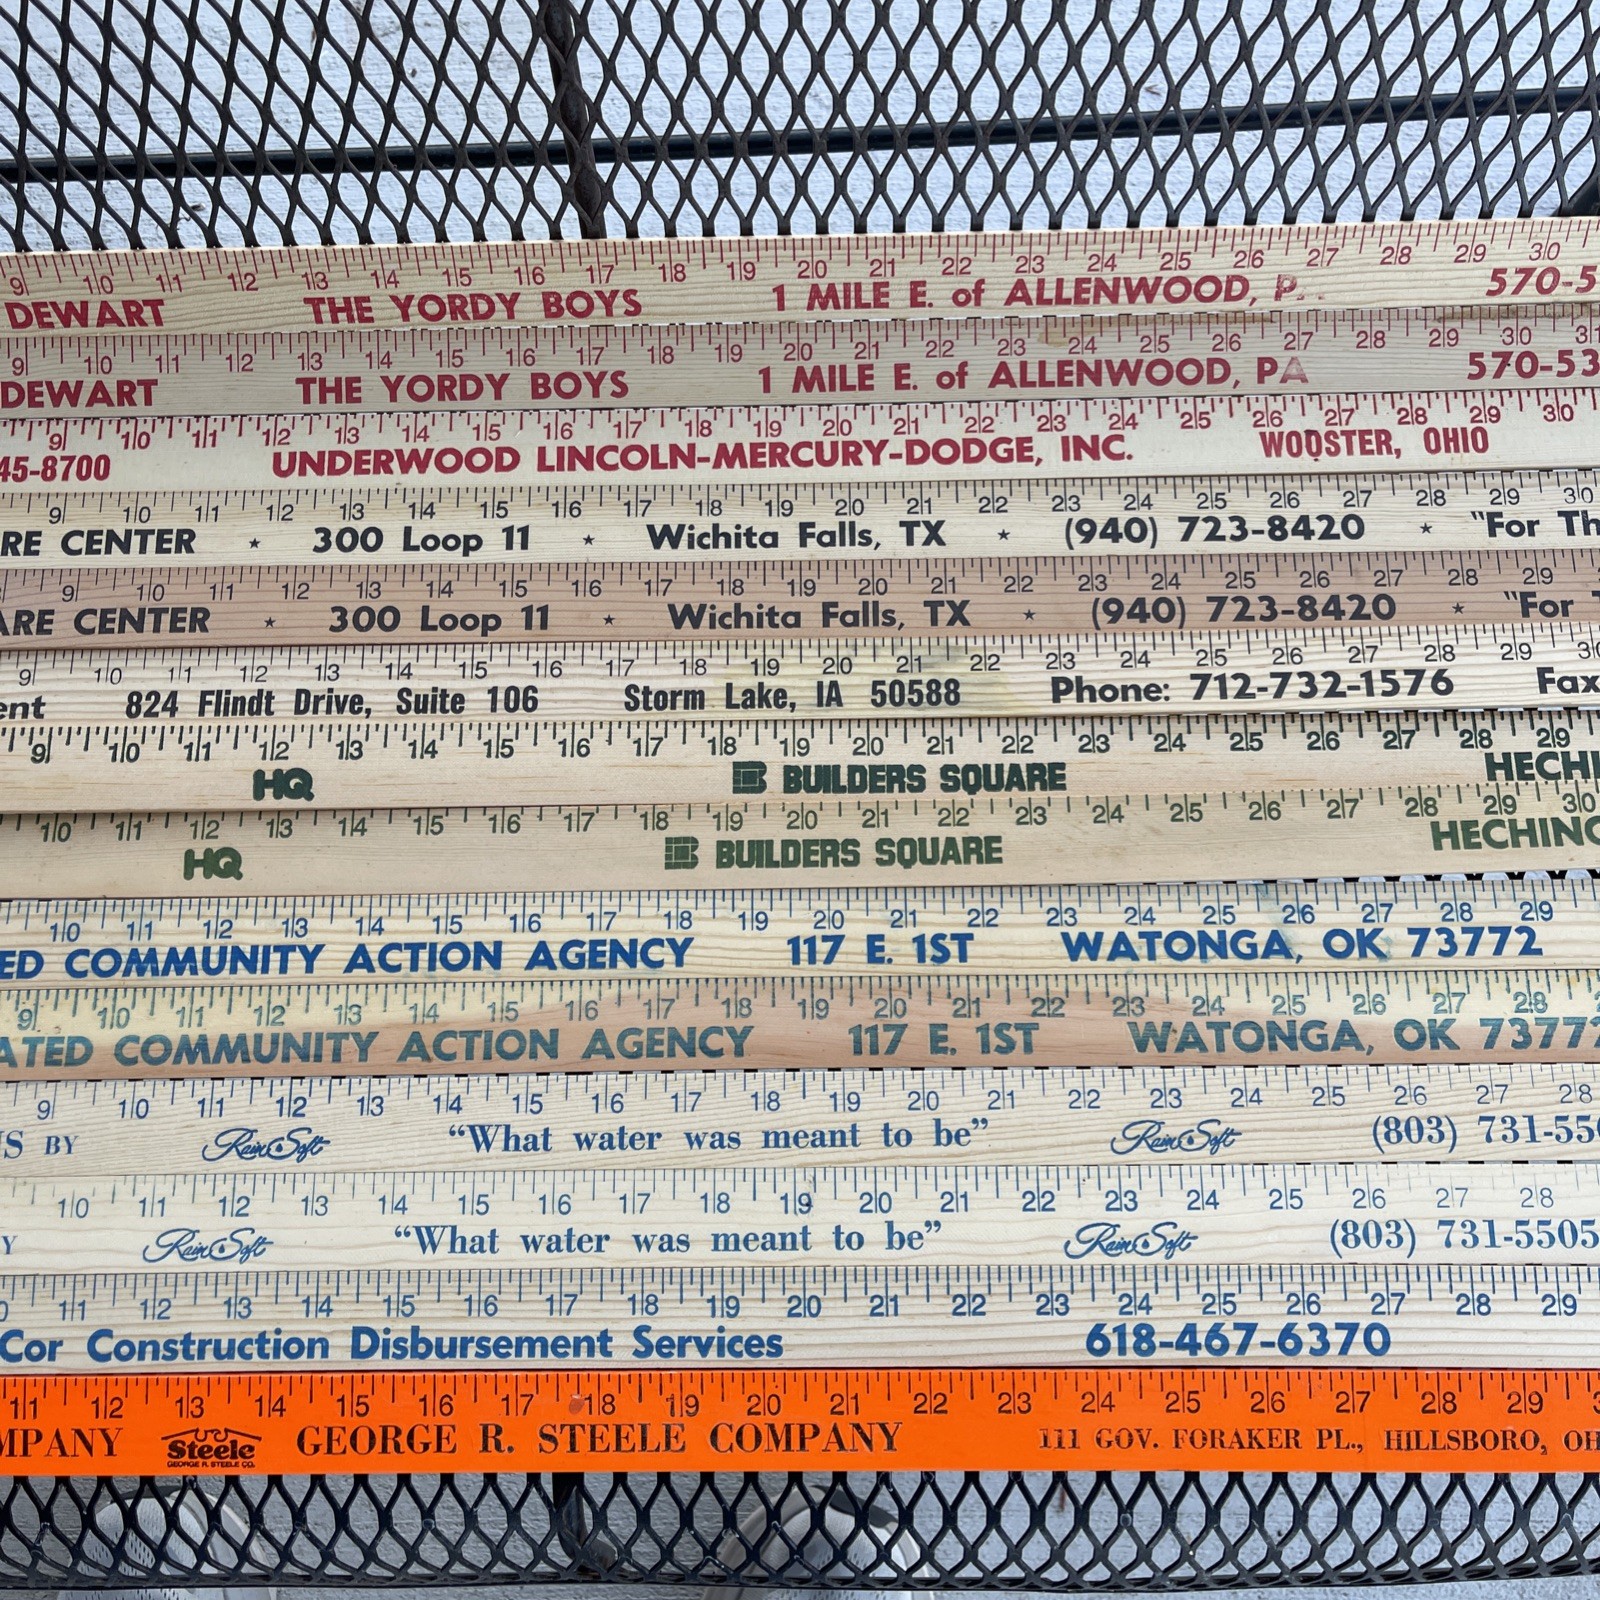 9 10 11 12 13 14 15 16 17 18 19 20 21 22 23 24 25 26 27 28 29 30
DEWART THE YORDY BOYS 1 MILE E. of ALLENWOOD, P 570-5
9 10 11 12 13 14 15 16 17 18 19 20 21 22 23 24 25 26 27 28 29 30 31
DEWART THE YORDY BOYS 1 MILE E. of ALLENWOOD, PA 570-53
9 10 11 12 13 14 15 16 17 18 19 20 21 22 23 24 25 26 27 28 29 30
45-8700 UNDERWOOD LINCOLN-MERCURY-DODGE, INC. WOOSTER, OHIO
9 10 11 12 13 14 15 16 17 18 19 20 21 22 23 24 25 26 27 28 29 30
RE CENTER ★ 300 Loop 11 ★ Wichita Falls, TX ★ (940) 723-8420 ★ "For Th
9 10 11 12 13 14 15 16 17 18 19 20 21 22 23 24 25 26 27 28 29
ARE CENTER ★ 300 Loop 11 ★ Wichita Falls, TX ★ (940) 723-8420 ★ "For T
9 10 11 12 13 14 15 16 17 18 19 20 21 22 23 24 25 26 27 28 29 30
ent 824 Flindt Drive, Suite 106 Storm Lake, IA 50588 Phone: 712-732-1576 Fax
9 10 11 12 13 14 15 16 17 18 19 20 21 22 23 24 25 26 27 28 29
HQ BUILDERS SQUARE HECHI
10 11 12 13 14 15 16 17 18 19 20 21 22 23 24 25 26 27 28 29 30
HQ BUILDERS SQUARE HECHING
10 11 12 13 14 15 16 17 18 19 20 21 22 23 24 25 26 27 28 29
ED COMMUNITY ACTION AGENCY 117 E. 1ST WATONGA, OK 73772
9 10 11 12 13 14 15 16 17 18 19 20 21 22 23 24 25 26 27 28 2
ATED COMMUNITY ACTION AGENCY 117 E. 1ST WATONGA, OK 73772
9 10 11 12 13 14 15 16 17 18 19 20 21 22 23 24 25 26 27 28
S BY RainSoft “What water was meant to be” RainSoft (803) 731-550
10 11 12 13 14 15 16 17 18 19 20 21 22 23 24 25 26 27 28
Y RainSoft “What water was meant to be” RainSoft (803) 731-5505
0 11 12 13 14 15 16 17 18 19 20 21 22 23 24 25 26 27 28 29
Cor Construction Disbursement Services 618-467-6370
11 12 13 14 15 16 17 18 19 20 21 22 23 24 25 26 27 28 29 3
MPANY Steele GEORGE R. STEELE COMPANY 111 GOV. FORAKER PL., HILLSBORO, OH
GEORGE R. STEELE CO.